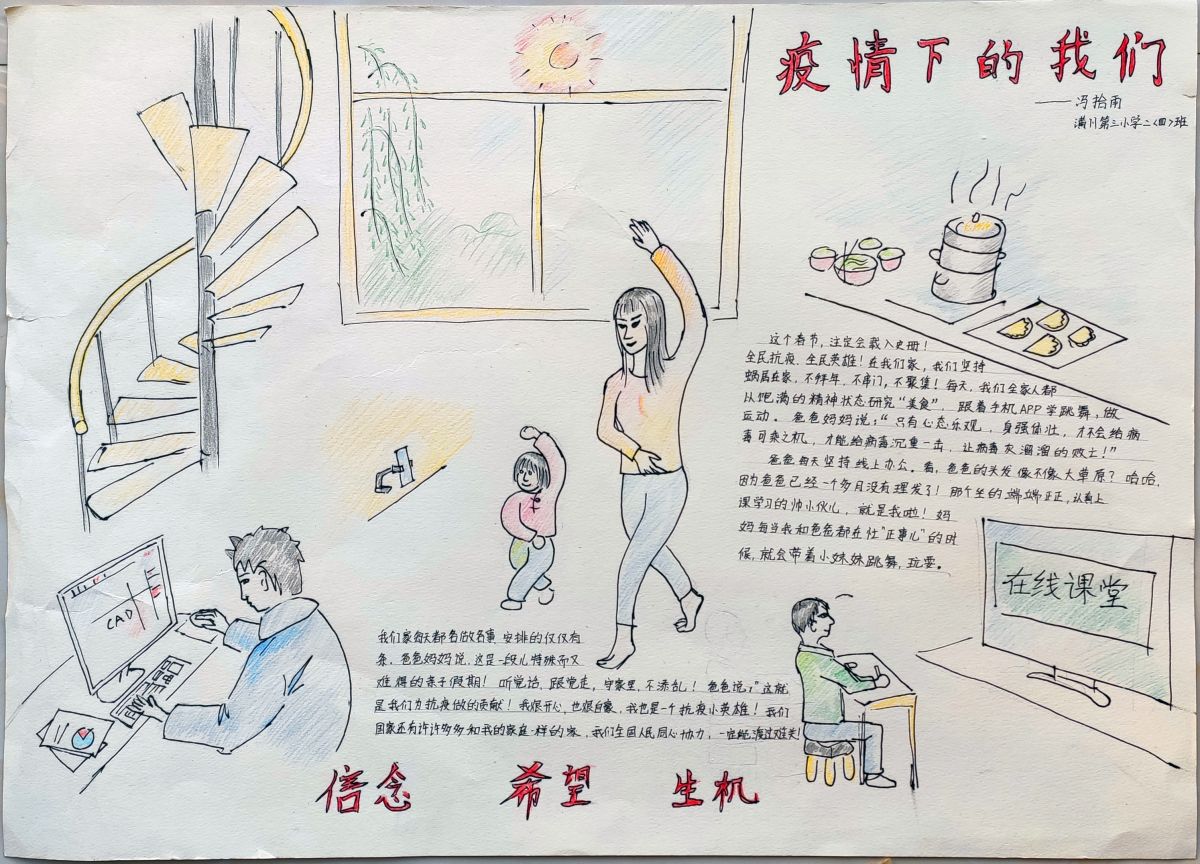 疫情下的我们
——冯拾雨
潢川第三小学二〈四〉班
这个春节，注定会载入史册！
全民抗疫，全民英雄！在我们家，我们坚持
蜗居在家，不拜年，不串门，不聚集！每天，我们全家人都
以饱满的精神状态研究“美食”，跟着手机APP学跳舞，做
运动。爸爸妈妈说：“只有心态乐观，身强体壮，才不会给病
毒可乘之机，才能给病毒沉重一击，让病毒灰溜溜的败土！”
爸爸每天坚持线上办公。看，爸爸的头发像不像大草原？哈哈，
因为爸爸已经一个多月没有理发了！那个坐的端端正正，认真上
课学习的帅小伙儿，就是我啦！妈
妈每当我和爸爸都在忙“正事儿”的时
候，就会带着小妹妹跳舞，玩耍。
CAD
在线课堂
我们家每天都各做各事，安排的仅仅有
条，爸爸妈妈说，这是一段儿特殊而又
难得的亲子假期！听党话，跟党走，守家里，不添乱！爸爸说：“这就
是我们为抗疫做的贡献！我很开心，也很自豪，我也是一个抗疫小英雄！我们
国家还有许许多多和我的家庭一样的家，我们全国人民同心协力，一定能渡过难关！
信念 希望 生机